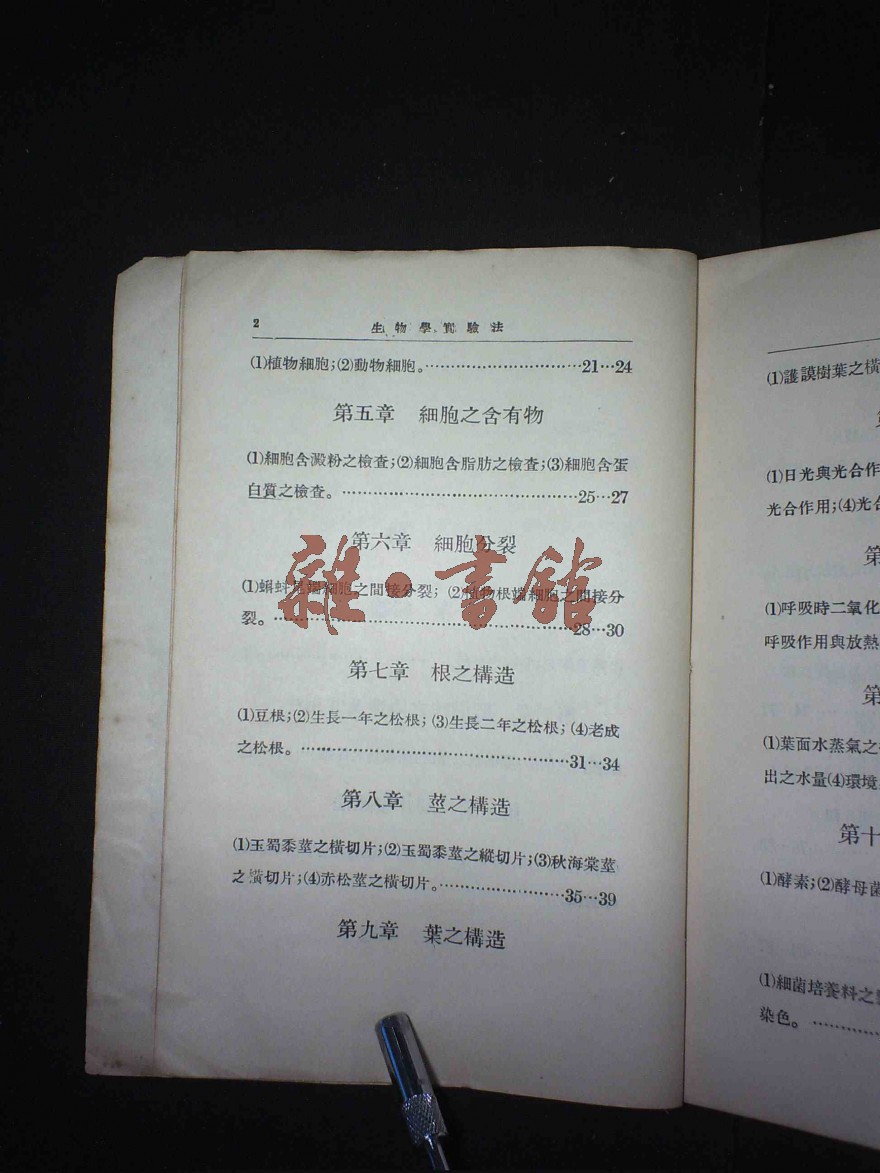 2 生物學實驗法
(1)植物細胞;(2)動物細胞。…………………………21…24
第五章 細胞之含有物
(1)細胞含澱粉之檢查;(2)細胞含脂肪之檢查;(3)細胞含蛋
白質之檢查。……………………………………25…27
第六章 細胞分裂
(1)蝌蚪尾端細胞之間接分裂;(2)植物根端細胞之間接分
裂。………………………………………………28…30
第七章 根之構造
(1)豆根;(2)生長一年之松根;(3)生長二年之松根;(4)老成
之松根。…………………………………………31…34
第八章 莖之構造
(1)玉蜀黍莖之橫切片;(2)玉蜀黍莖之縱切片;(3)秋海棠莖
之橫切片;(4)赤松莖之橫切片。…………………35…39
第九章 葉之構造
雜·書館
(1)護謨樹葉之橫
(1)日光與光合作
光合作用;(4)光合
第
(1)呼吸時二氧化
呼吸作用與放熱
第
(1)葉面水蒸氣之
出之水量(4)環境
第十
(1)酵素;(2)酵母菌
(1)細菌培養料之
染色。…………